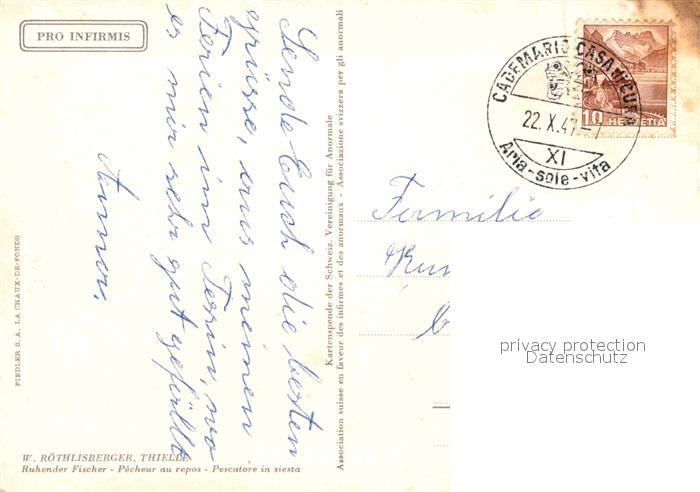 PRO INFIRMIS
Sende Euch die besten
grüsse, aus meinen
Ferien im Tessin, wo
es mir sehr gut gefällt
FIEDLER S.A. LA CHAUX-DE-FONDS
W. RÖTHLISBERGER, THIELLE
Ruhender Fischer - Pêcheur au repos - Pescatore in siesta
Kartenspende der Schweiz. Vereinigung für Anormale
Association suisse en faveur des infirmes et des anormaux - Associazione svizzera per gli anormali
CADEMARIO CASA DI CURA
22. X. 47
XI
Aria-sole-vita
10 HELVETIA
Familie
privacy protection
Datenschutz